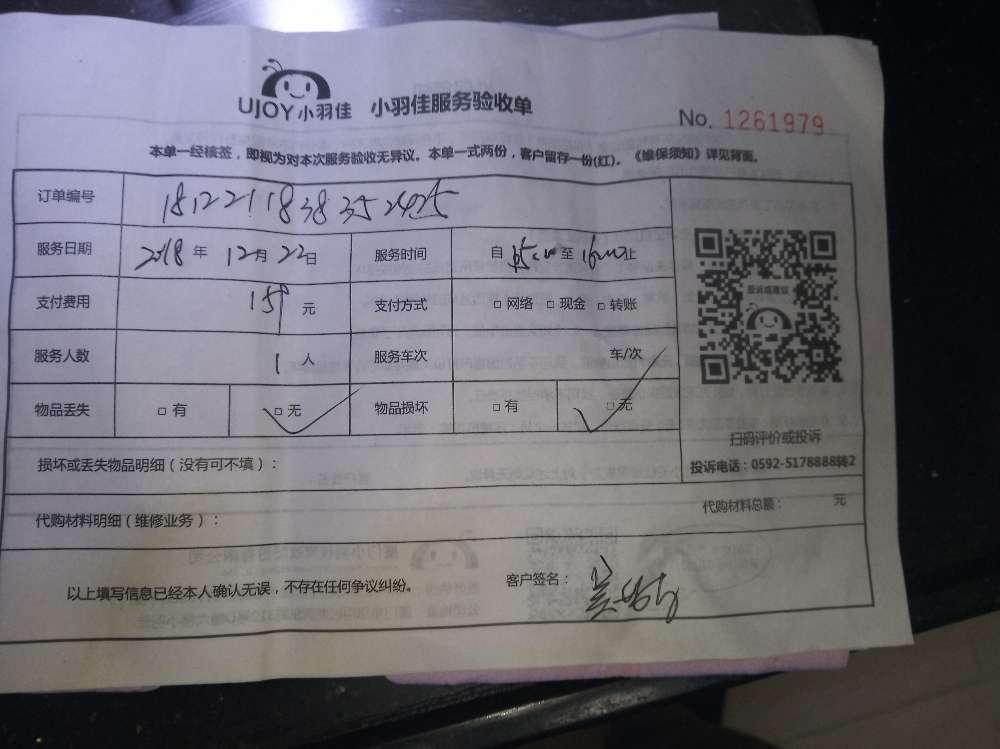 UJOY小羽佳 小羽佳服务验收单
No. 1261979
本单一经核签，即视为对本次服务验收无异议。本单一式两份，客户留存一份(红)。《维保须知》详见背面。
订单编号
服务日期 2018年12月22日 服务时间 自 至 止
支付费用 159元 支付方式 □网络 □现金 □转账
服务人数 1人 服务车次 车/次
物品丢失 □有 □无 物品损坏 □有 □无
投诉或建议
扫码评价或投诉
投诉电话：0592-5178888转2
损坏或丢失物品明细（没有可不填）：
代购材料明细（维修业务）： 代购材料总额： 元
以上填写信息已经本人确认无误，不存在任何争议纠纷。 客户签名：